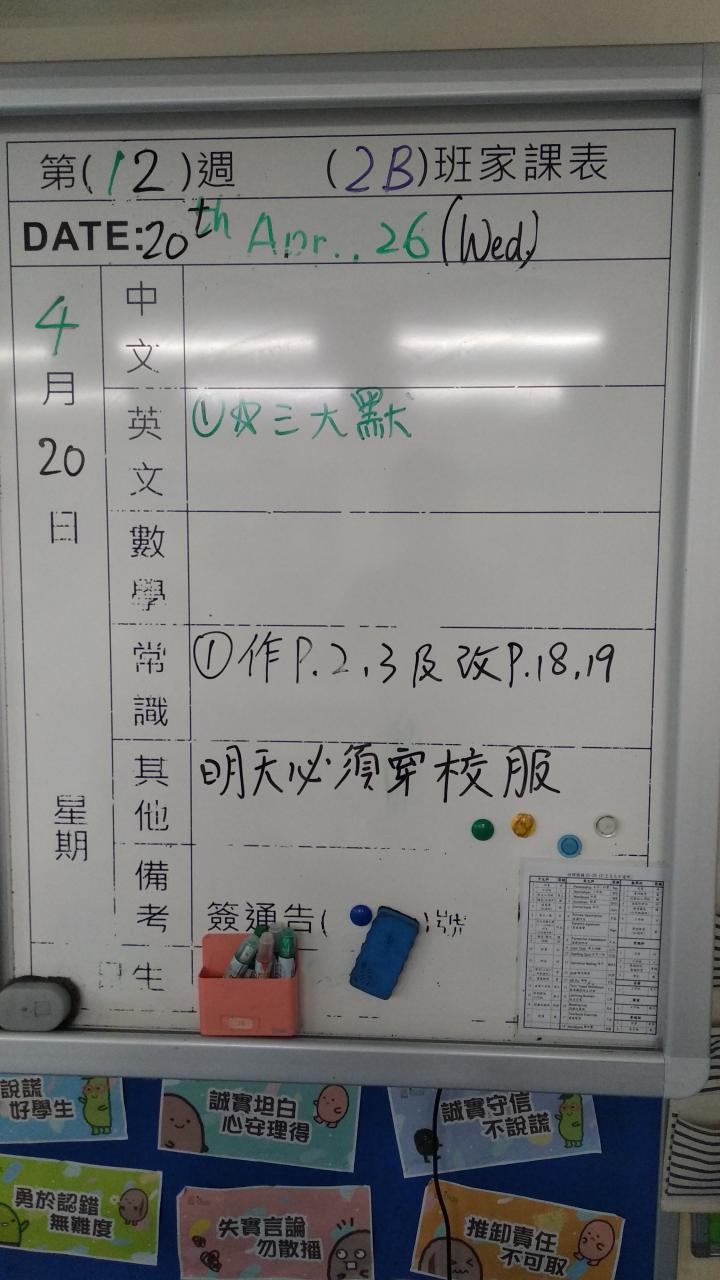 第(12)週 (2B)班家課表
DATE:20th Apr..26(Wed.)
4月20日 星期
中文
英文 ①三大默
數學
常識 ①作P.2,3及改P.18,19
其他 明天必須穿校服
備考 簽通告( )號
生
說謊
好學生
誠實坦白
心安理得
誠實守信
不說謊
勇於認錯
無難度
失實言論
勿散播
推卸責任
不可取